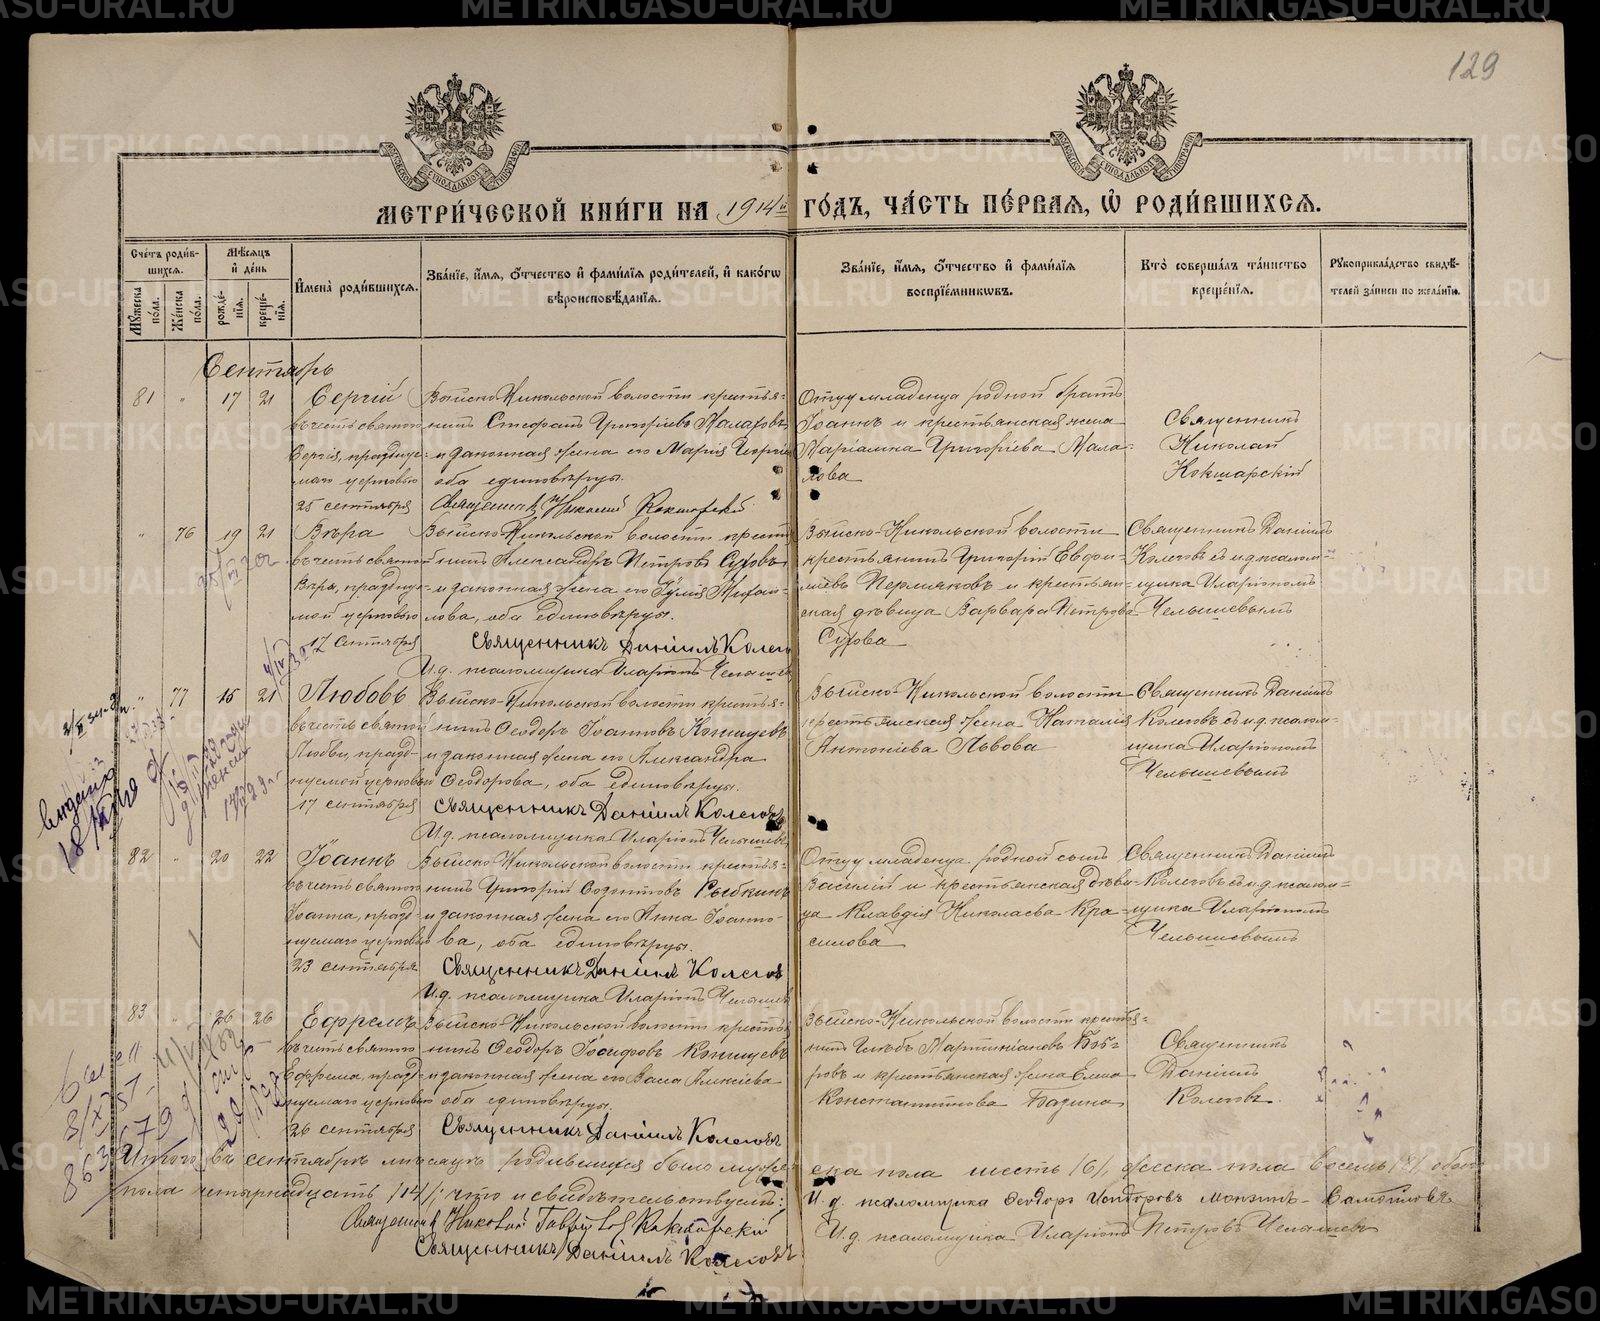 129
МЕТРИ́ЧЕСКОЙ КНИ́ГИ НА 1914й ГО́ДЪ, ЧА́СТЬ ПЕ́РВАЯ, Ѡ҆ РОДИ́ВШИХСЯ.
Сче́тъ роди́вшихся.
Мѣ́сяцъ и҆ де́нь
И҆мена̀ роди́вшихся.
Зва́нїе, и҆́мя, ѻ҆́тчество и҆ фами́лїя роди́телей, и҆ како́гѡ вѣроисповѣ́данїя.
Зва́нїе, и҆́мя, ѻ҆́тчество и҆ фами́лїя воспрїе́мникѡвъ.
Кто̀ соверша́лъ та́инство креще́нїя.
Рꙋкоприкла́дство свидѣ́телей за́писи по жела́нїю.
Мꙋ́жеска по́ла.
Же́нска по́ла.
рожде́нїя.
креще́нїя.
Сентябрь
81 " 17 21
Сергій
въ честь святого
Сергія, празднуе-
маго церковью
25 сентября
Выйско-Никольской волости крестья-
нинъ Стефанъ Григоріевъ Малаховъ
и законная жена его Марія Георгіе
оба единовѣрцы.
Священник Николай Кокшарский
Отцу младенца родной братъ
Іоаннъ и крестьянская жена
Маріамна Григоріева Мала-
хова
Священникъ
Николай
Кокшарскій
" 76 19 21
Вѣра
въ честь святой
Вѣры, празднуе-
мой церковью
17 сентября
Выйско-Никольской волости крестья
нинъ Александръ Петровъ Суховъ
и законная жена его Іулія Михай-
лова, оба единовѣрцы.
Священникъ Даніилъ Колего
И.д. псаломщика Иларіонъ Челышев
Выйско-Никольской волости
крестьянинъ Григорій Евфи-
міевъ Пермяковъ и крестьян-
ская дѣвица Варвара Петрова
Сухова
Священникъ Даніилъ
Колеговъ съ и.д. псалом-
щика Иларіономъ
Челышевымъ
" 77 15 21
Любовь
въ честь святой
Любви, празд-
нуемой церковью
17 сентября
Выйско-Никольской волости крестья-
нинъ Ѳеодоръ Іоанновъ Конищевъ
и законная жена его Александра
Ѳеодорова, оба единовѣрцы.
Священникъ Даніилъ Колеговъ
И.д. псаломщика Иларіонъ Челышевъ
Выйско-Никольской волости
крестьянская жена Наталія
Антоніева Львова
Священникъ Даніилъ
Колеговъ съ и.д. псалом-
щика Иларіономъ
Челышевымъ
82 " 20 22
Іоаннъ
въ честь святого
Іоанна, празд-
нуемаго церковью
23 сентября
Выйско-Никольской волости крестья-
нинъ Григорій Созонтовъ Рыбкинъ
и законная жена его Анна Іоанно-
ва, оба единовѣрцы.
Священникъ Даніилъ Колегов
И.д. псаломщика Иларіонъ Челышев
Отцу младенца родной сынъ
Василій и крестьянская дѣви-
ца Клавдія Николаева Кра-
силова
Священникъ Даніилъ
Колеговъ съ и.д. псалом-
щика Иларіономъ
Челышевымъ
83 " 26 26
Ефремъ
въ честь святого
Ефрема, празд-
нуемаго церковью
26 сентября
Выйско-Никольской волости крестья
нинъ Ѳеодоръ Іосифовъ Конищевъ
и законная жена его Васса Алексіева
оба единовѣрцы.
Священникъ Даніилъ Колеговъ
Выйско-Никольской волости крестья-
нинъ Глѣбъ Мартиніановъ Боб-
ровъ и крестьянская жена Елена
Константинова Базина
Священникъ
Даніилъ
Колеговъ.
Итого въ сентябрѣ мѣсяцѣ родившихся было муже- ска пола шесть /6/, женска пола восемь /8/, обоего
пола четырнадцать /14/; что и свидѣтельствуемъ:
Священник Николай Гаврилов Кокшарский
Священникъ Даніилъ Колеговъ
И.д. псаломщика Ѳеодоръ Исидоровъ Мокинъ-Самойловъ
И.д. псаломщика Иларіонъ Петровъ Челышевъ
METRIKI.GASO-URAL.RU